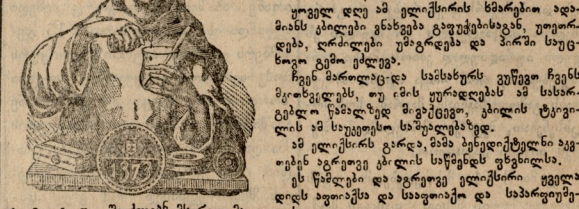 ყოველ დღე ამ ელიქსირის ხმარებით ადა-
მიანს კბილები ენახვება გაფუჭებისაგან, უთეთრ-
დება, ღრძილები უმაგრდება და პირში საუც-
ხოვო გემო ეძლევა.
ჩვენ მართლაც-და სამსახურს ვუწევთ ჩვენს
მკითხველებს, თუ იმის ყურადღებას ამ სასარ-
გებლო წამალზედ მივაქცევთ, კბილის ტკივი-
ლის ამ საუკეთესო საშუალებაზედ.
ამ ელიქსირს გარდა, მამა ბენედიქტელნი აკე-
თებენ აგრეთვე კბილის საწმენდს ფხვნილსა.
ეს წამლები და აგრეთვე ელიქსირი ყველა
დიდს აფთიაქსა და სააფთიაქო და საპარფიუმე-
1373